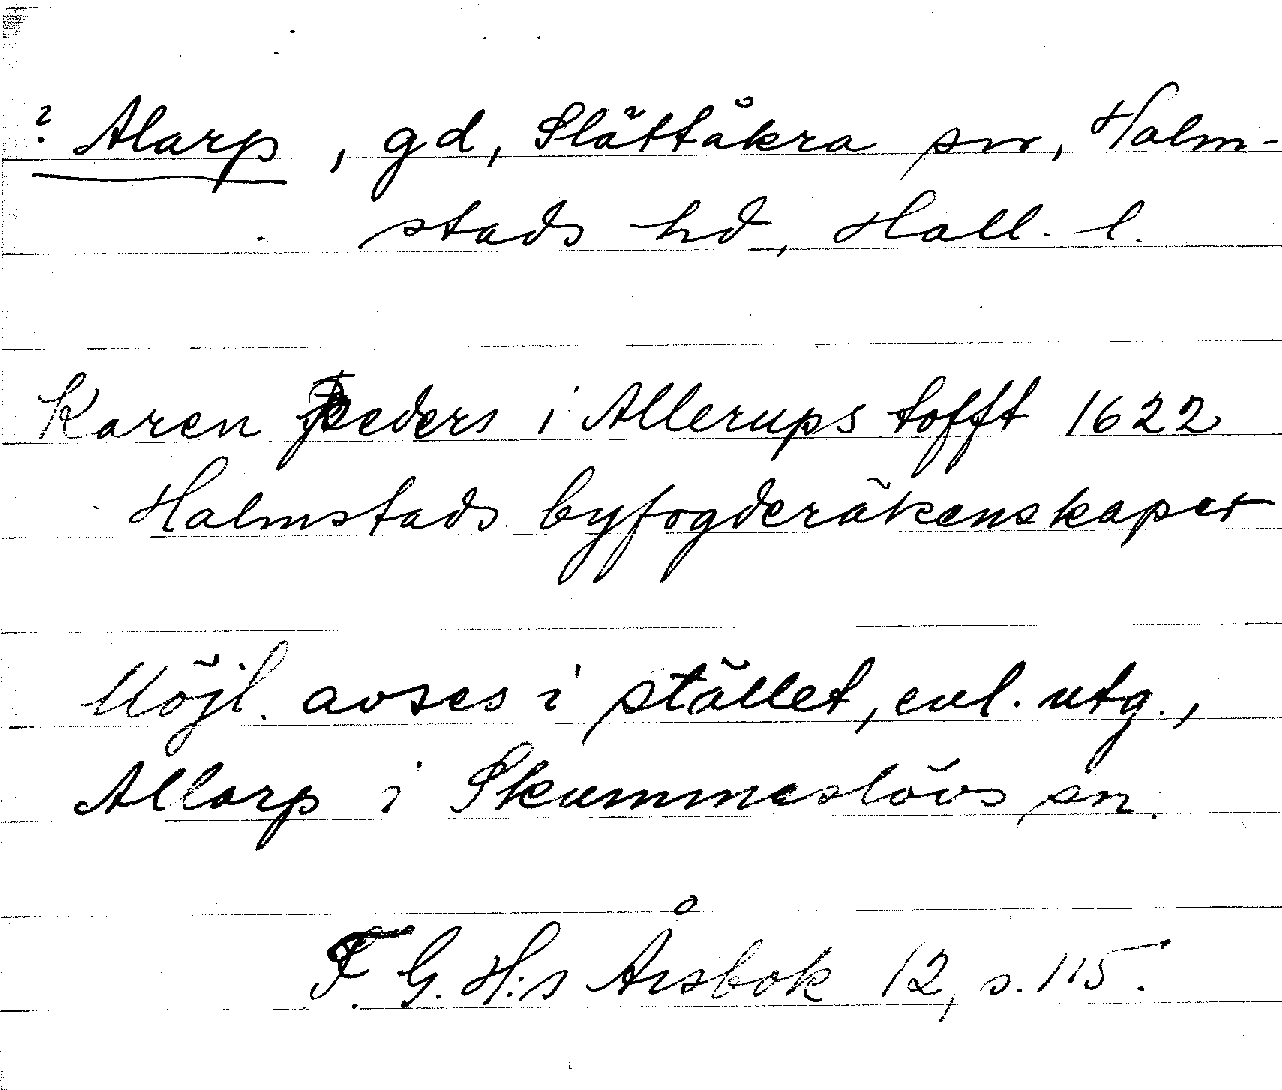 ? Alarp, gd, Slättåkra sn, Halm-
stads hd, Hall. l.
Karen Peders i Allerups tofft 1622
Halmstads byfogderäkenskaper
Möjl. avses i stället, enl. utg.,
Allarp i Skummeslövs sn.
F. G. H:s Årsbok 12, s. 115.